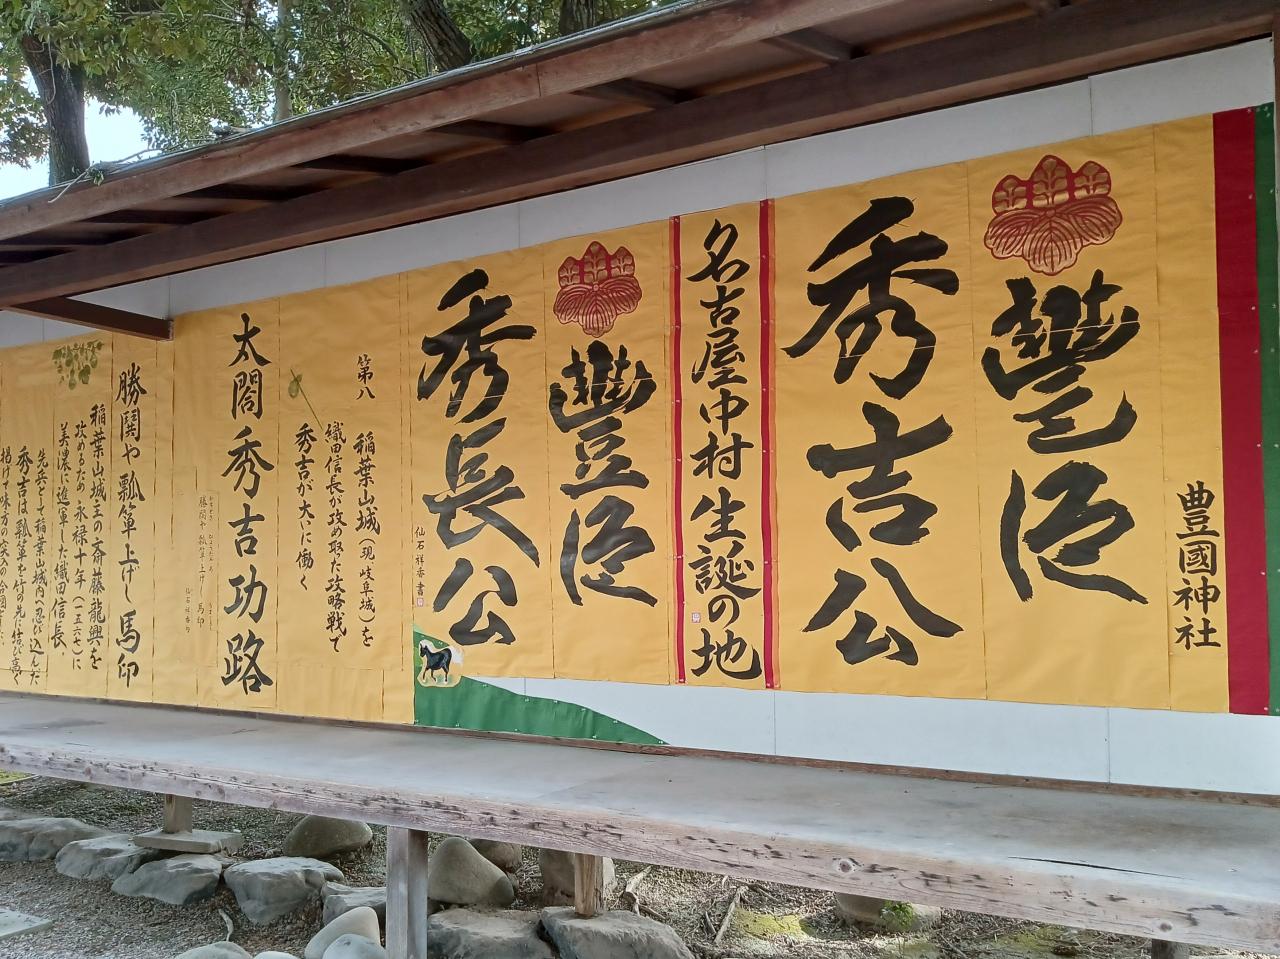 豊國神社
豐臣
秀吉公
名古屋中村生誕の地
豐臣
秀長公
仙石祥香書
第八 稲葉山城(現 岐阜城)を
織田信長が攻め取た攻略戦で
秀吉が大に働く
太閤秀吉功路
勝鬨や瓢箪上げし馬印
仙石祥香
勝鬨や瓢箪上げし馬印
稲葉山城主の斎藤龍興を
攻めるため永禄十年(一五六七)に
美濃に進軍した織田信長、
先兵として稲葉山城内へ忍び込んだ
秀吉は瓢箪を竹の先に結び高く
掲げて味方の